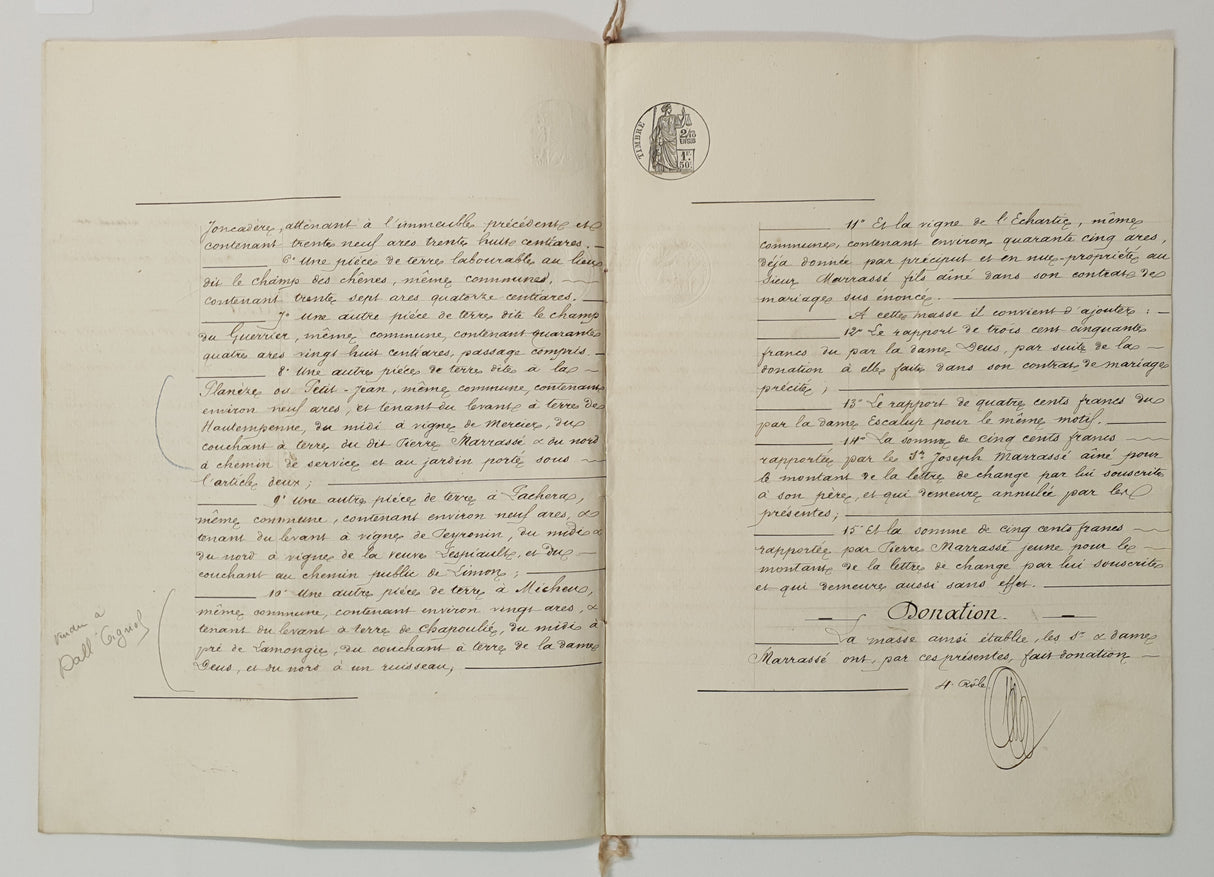 Joncadère, attenant à l'immeuble précédent et
contenant trente neuf ares trente huit centiares.
6° Une pièce de terre labourable au lieu
dit le champ des chênes, même commune,
contenant trente sept ares quatorze centiares.
7° Une autre pièce de terre dite le champ
du Guerrier, même commune, contenant quarante
quatre ares vingt huit centiares, passage compris.
8° Une autre pièce de terre dite à la
Planèze ou Petit-Jean, même commune, contenant
environ neuf ares, et tenant du levant à terre de
Hautempenne, du midi à vigne de Mercier, du
couchant à terre du dit Pierre Marrassé & du nord
à chemin de service et au jardin porté sous
l'article deux;
9° Une autre pièce de terre à Pachera,
même commune, contenant environ neuf ares, &
tenant du levant à vigne de Peyronin, du midi &
du nord à vigne de la veuve Lespiault, et du
couchant au chemin public de Limon;
10° Une autre pièce de terre à Micheu,
même commune, contenant environ vingt ares, &
tenant du levant à terre de Chapoulié, du midi à
pré de Lamongie, du couchant à terre de la dame
Deus, et du nord à un ruisseau,
vendu à
TIMBRE
2/10 EN SUS
1F 50C
11° Et la vigne de l'Echartie, même
commune, contenant environ quarante cinq ares,
déjà donnée par préciput et en nue-propriété au
Sieur Marrassé fils aîné dans son contrat de
mariage sus énoncé.
A cette masse il convient d'ajouter :
12° Le rapport de trois cent cinquante
francs du par la dame Deus, par suite de la
donation à elle faite dans son contrat de mariage
précité;
13° Le rapport de quatre cents francs du
par la dame Escalup pour le même motif.
14° La somme de cinq cents francs
rapportée par le Sr Joseph Marrassé aîné pour
le montant de la lettre de change par lui souscrite
à son père, et qui demeure annulée par les
présentes;
15° Et la somme de cinq cents francs
rapportée par Pierre Marrassé jeune pour le
montant de la lettre de change par lui souscrite
et qui demeure aussi sans effet.
Donation.
La masse ainsi établie, les Sr & dame
Marrassé ont, par ces présentes, fait donation
4e Rôle